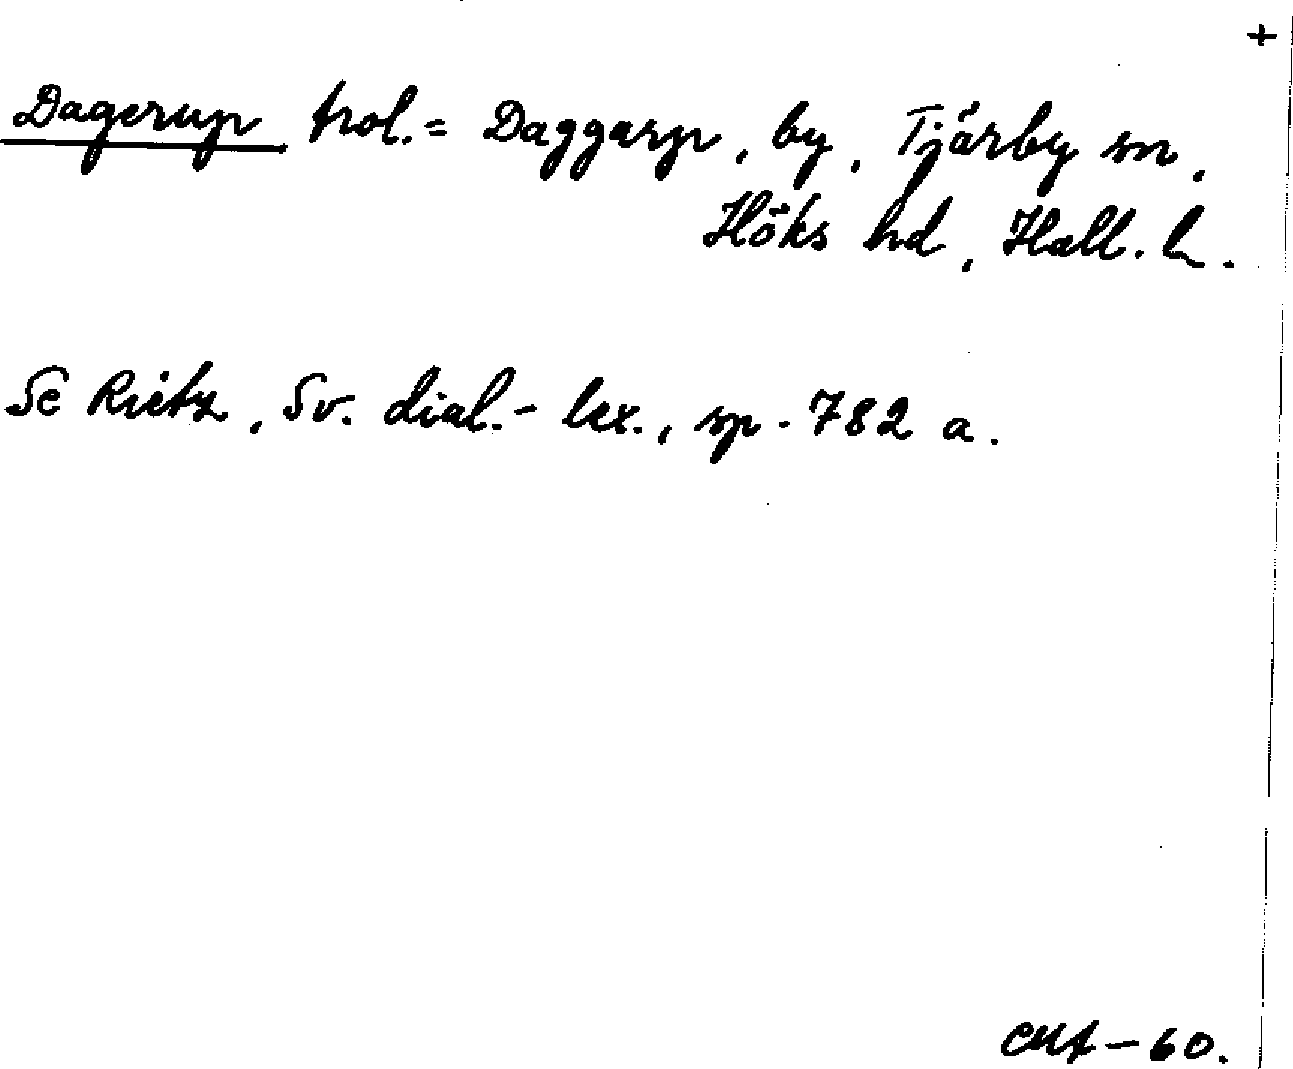 +
Dagerup trol. = Daggarp, by, Tjärby sn,
Höks hd, Hall. l.
Se Rietz, Sv. dial.-lex., sp. 782 a.
-60.